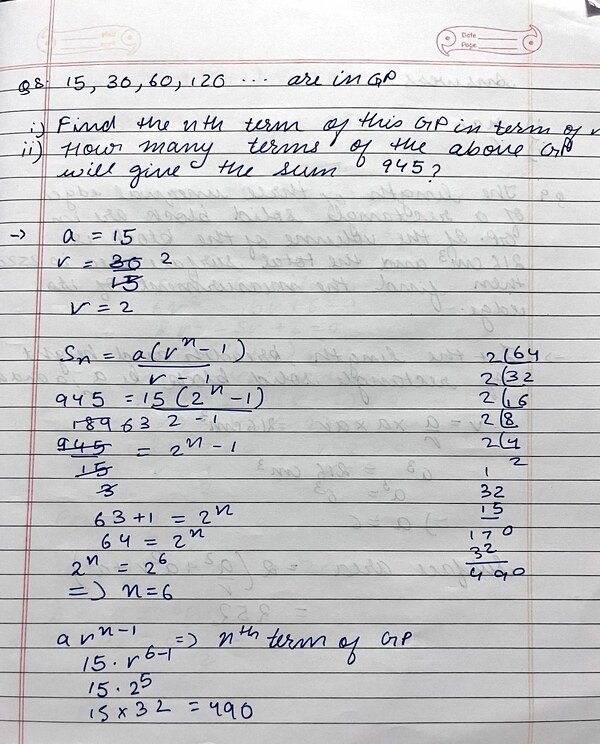 Date
Page
Q8. 15, 30, 60, 120 ... are in GP
i) Find the nth term of this GP in term of n
ii) How many terms of the above GP
will give the sum 945?
-> a = 15
r = 30 2
15
r = 2
Sn = a(r^n - 1)
r - 1
945 = 15(2^n - 1)
2 - 1
189 63
945 = 2^n - 1
15
3
63 + 1 = 2^n
64 = 2^n
2^n = 2^6
=> n = 6
ar^n-1 => nth term of GP
15 . r^6-1
15 . 2^5
15 x 32 = 490
2 64
2 32
2 16
2 8
2 4
2
1
32
15
170
32
490